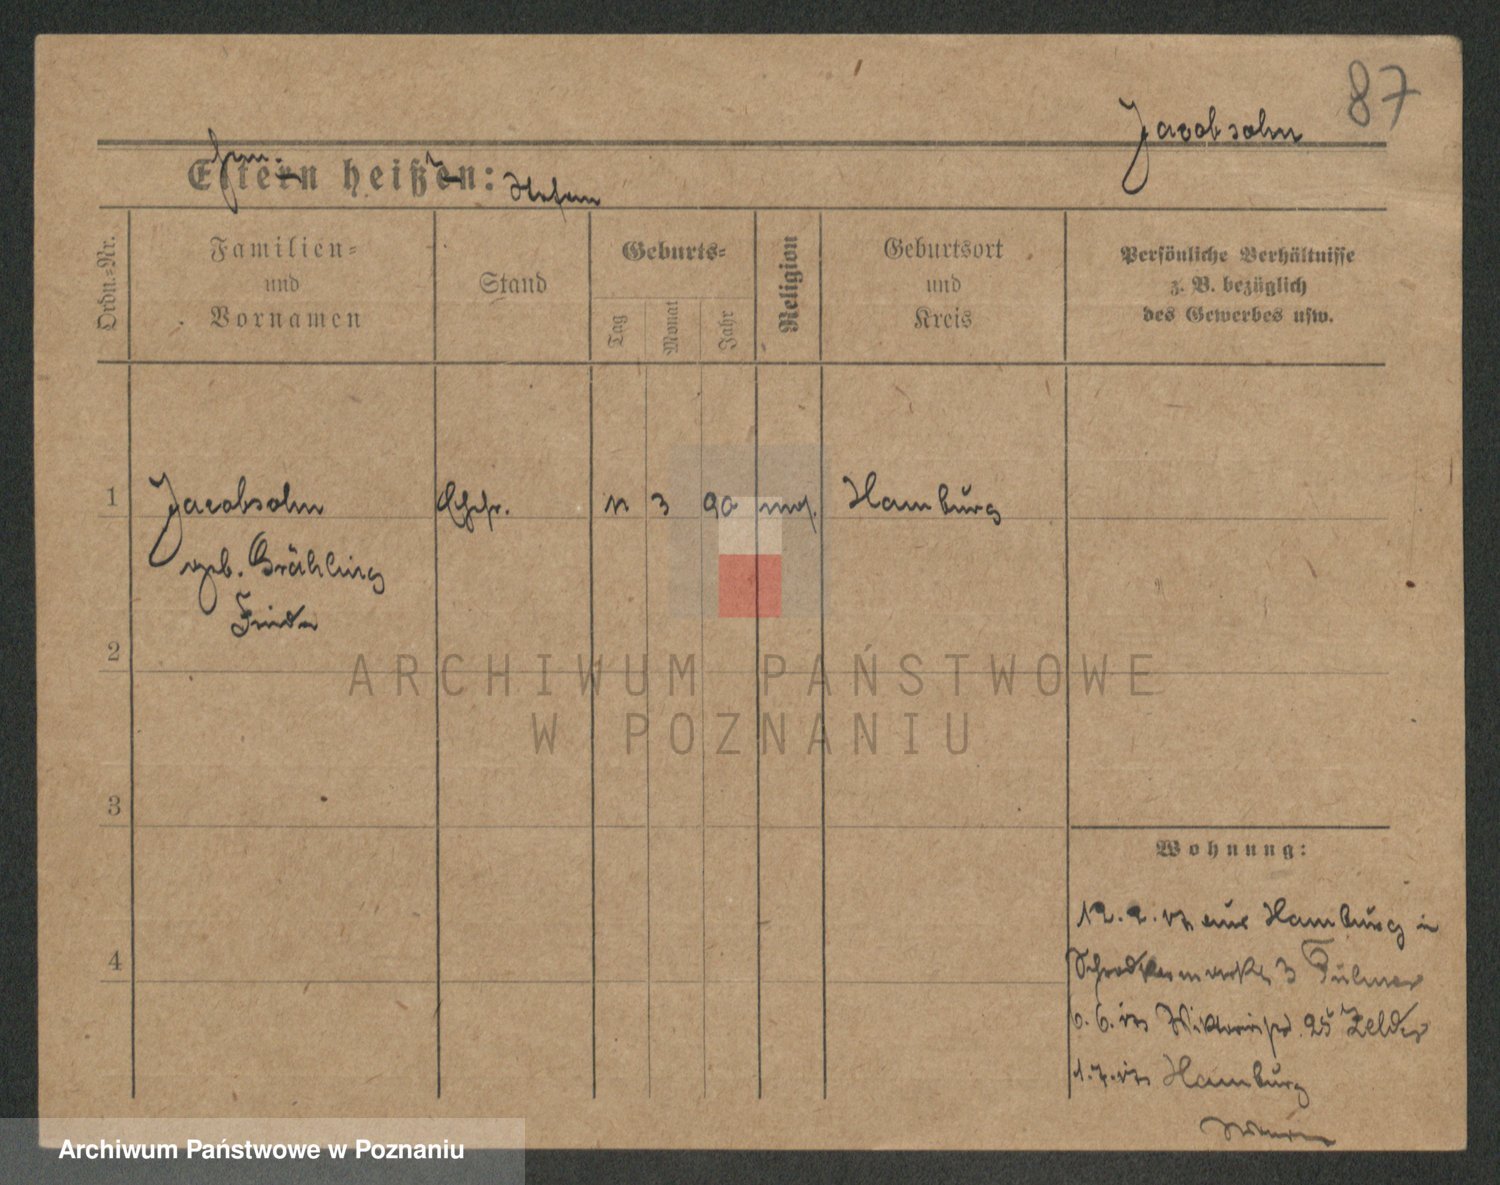 87
Jacobsohn
Eltern heißen:
Ordn.=Nr.
Familien=
und
Vornamen
Stand
Geburts=
Tag
Monat
Jahr
Religion
Geburtsort
und
Kreis
Persönliche Verhältnisse
z. B. bezüglich
des Gewerbes usw.
1 Jacobsohn Ehefr. 11 3 90 mos. Hamburg
geb. Grähling
Frieda
2
3
4
Wohnung:
12.2.17 aus Hamburg in
Schrodkamarkt 3
6.6.17 Viktoriastr. 25
1.7.17 Hamburg
ARCHIWUM PAŃSTWOWE
W POZNANIU
Archiwum Państwowe w Poznaniu